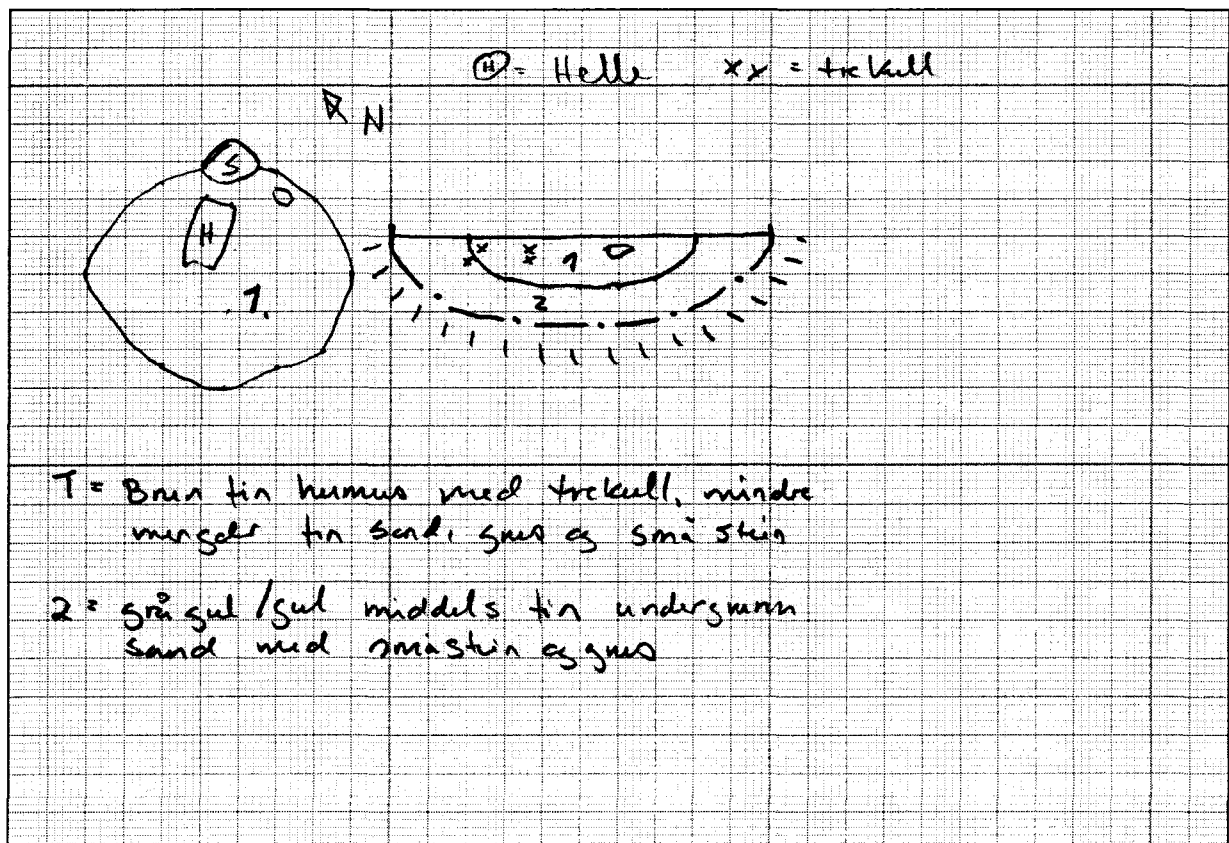 Ⓗ = Helle xx = trekull
N
S
H
1.
1
2
1 = Brun fin humus med trekull, mindre
mengder fin sand, grus og små stein
2 = grågul / gul middels fin undergrunn
sand med småstein og grus